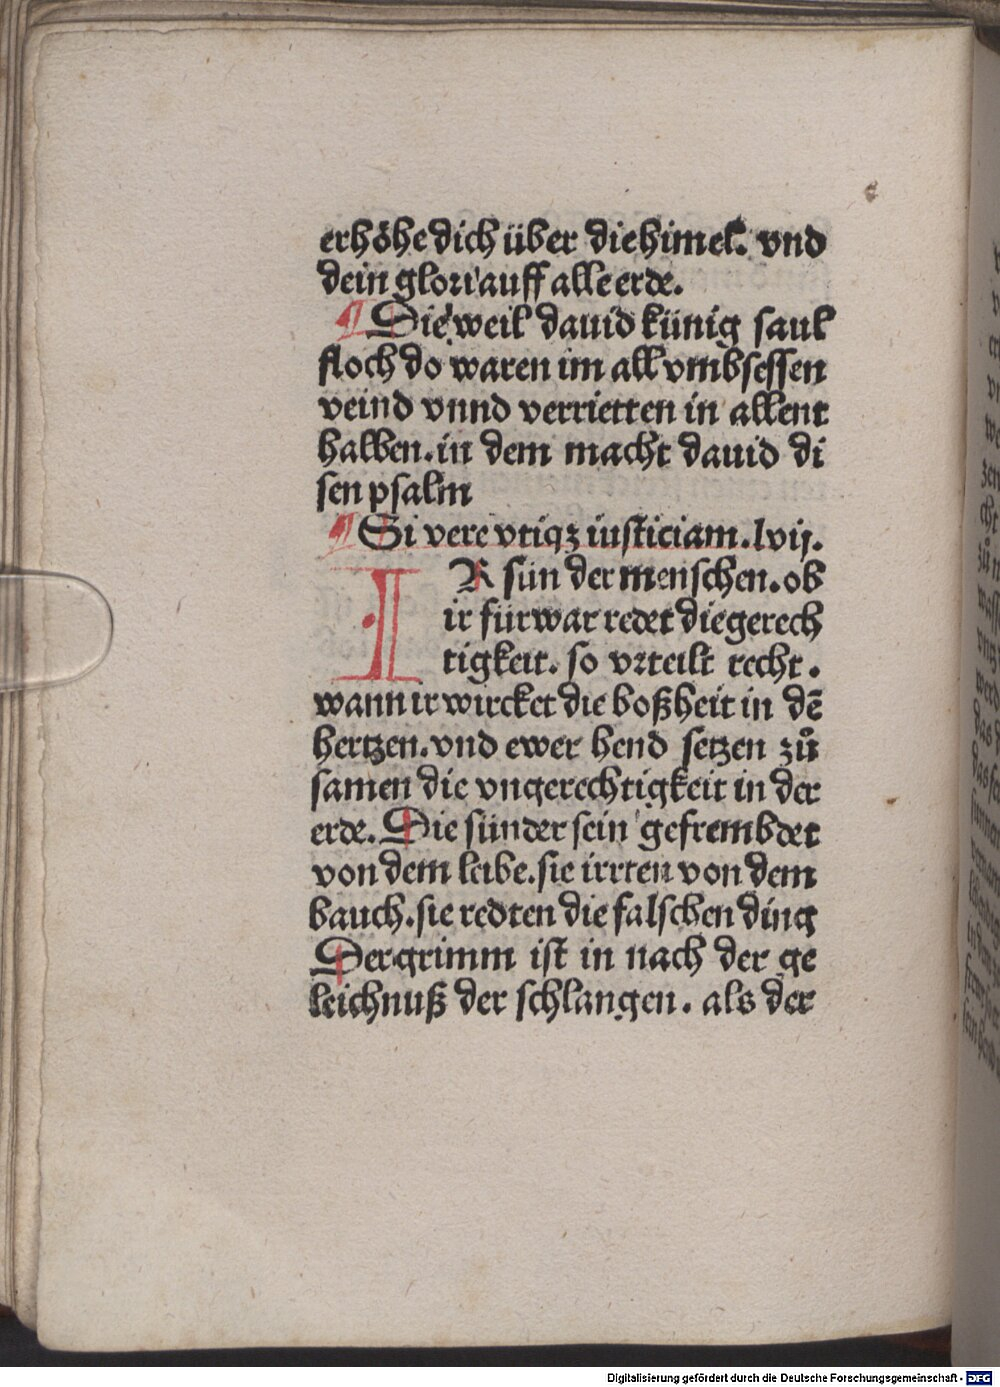 erhöhe dich über die himel. vnd
dein glori auff alle erde.
¶ Die weil dauid künig saul
floch do waren im all vmbsessen
veind vnnd verrietten in allent
halben. in dem macht dauid di
sen psalm
¶ Si vere vtiqz iusticiam. lvij.
IR sün der menschen. ob
ir fürwar redet die gerech
tigkeit. so vrteilt recht.
wann ir wircket die boßheit in dē
hertzen. vnd ewer hend setzen zů
samen die vngerechtigkeit in der
erde. Die sünder sein gefrembdet
von dem leibe. sie irrten von dem
bauch. sie redten die falschen ding
Der grimm ist in nach der ge
leichnuß der schlangen. als der
Digitalisierung gefördert durch die Deutsche Forschungsgemeinschaft - DFG